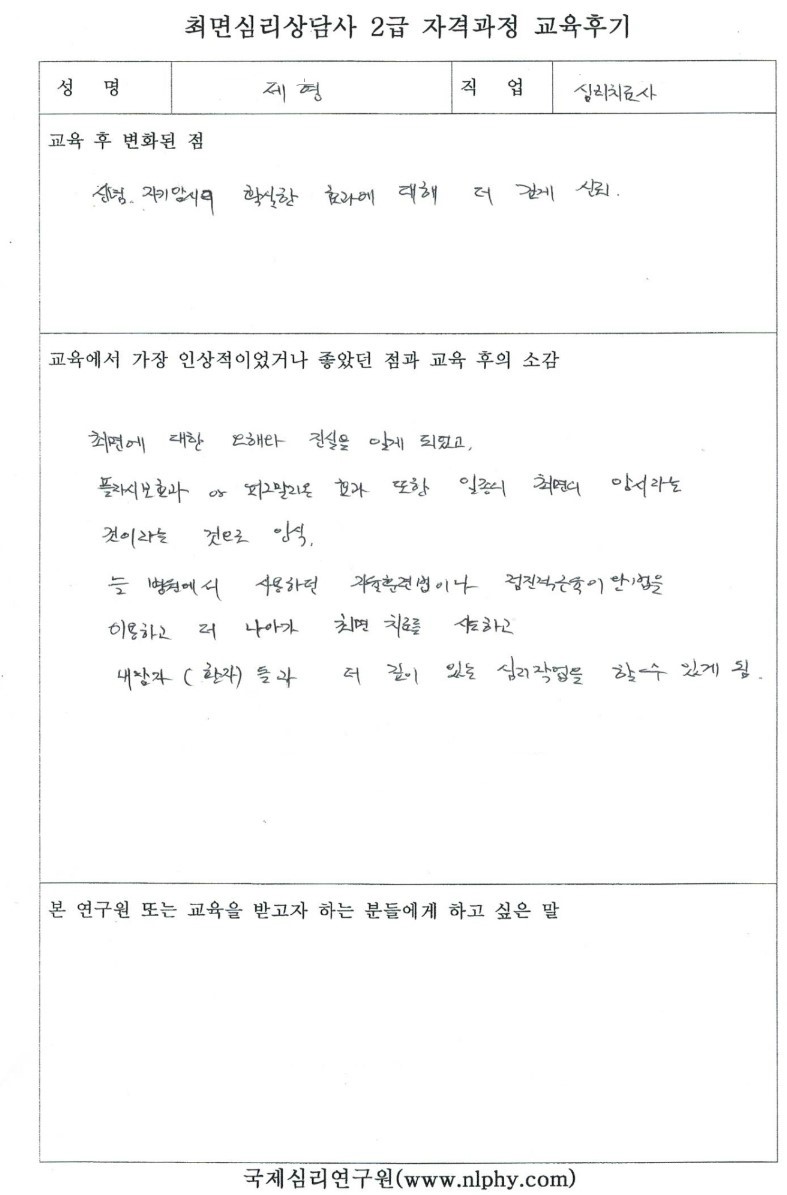 최면심리상담사 2급 자격과정 교육후기
성 명 제 형 직 업 심리치료사
교육 후 변화된 점
신념. 자기암시의 확실한 효과에 대해 더 깊게 신뢰.
교육에서 가장 인상적이었거나 좋았던 점과 교육 후의 소감
최면에 대한 오해와 진실을 알게 되었고,
플라시보효과 or 피그말리온 효과 또한 일종의 최면의 암시라는
것이라는 것으로 인식,
늘 병원에서 사용하던 자율훈련법이나 점진적근육이완기법을
이용하고 더 나아가 최면 치료를 시도하고
내담자 (환자) 들과 더 깊이 있는 심리작업을 할 수 있게 됨.
본 연구원 또는 교육을 받고자 하는 분들에게 하고 싶은 말
국제심리연구원(www.nlphy.com)